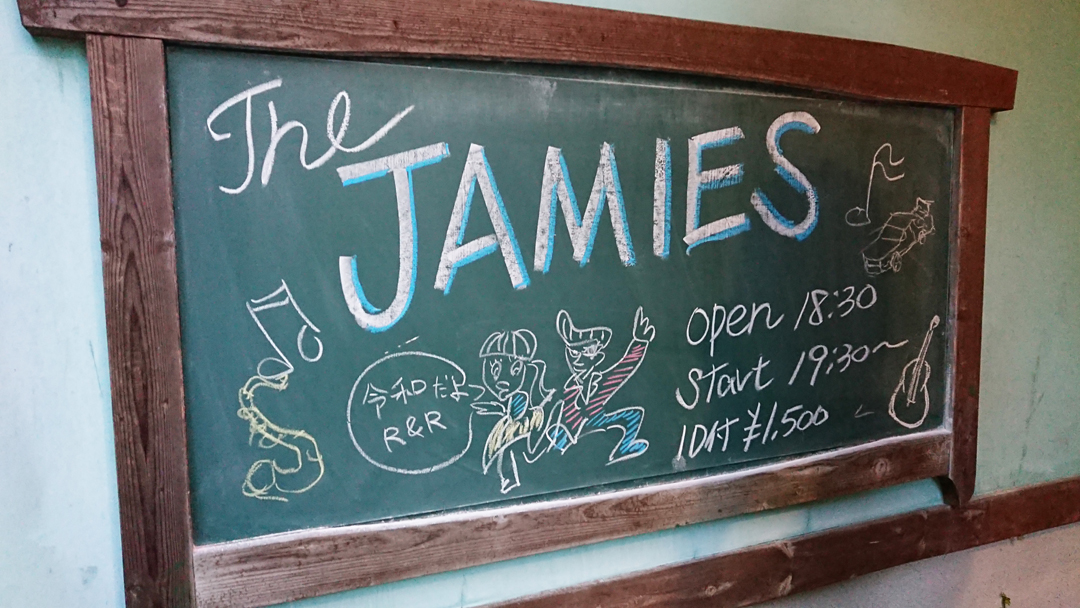 The
JAMIES
令和だよ
R&R
Open 18:30
Start 19:30〜
1D付 ¥1.500